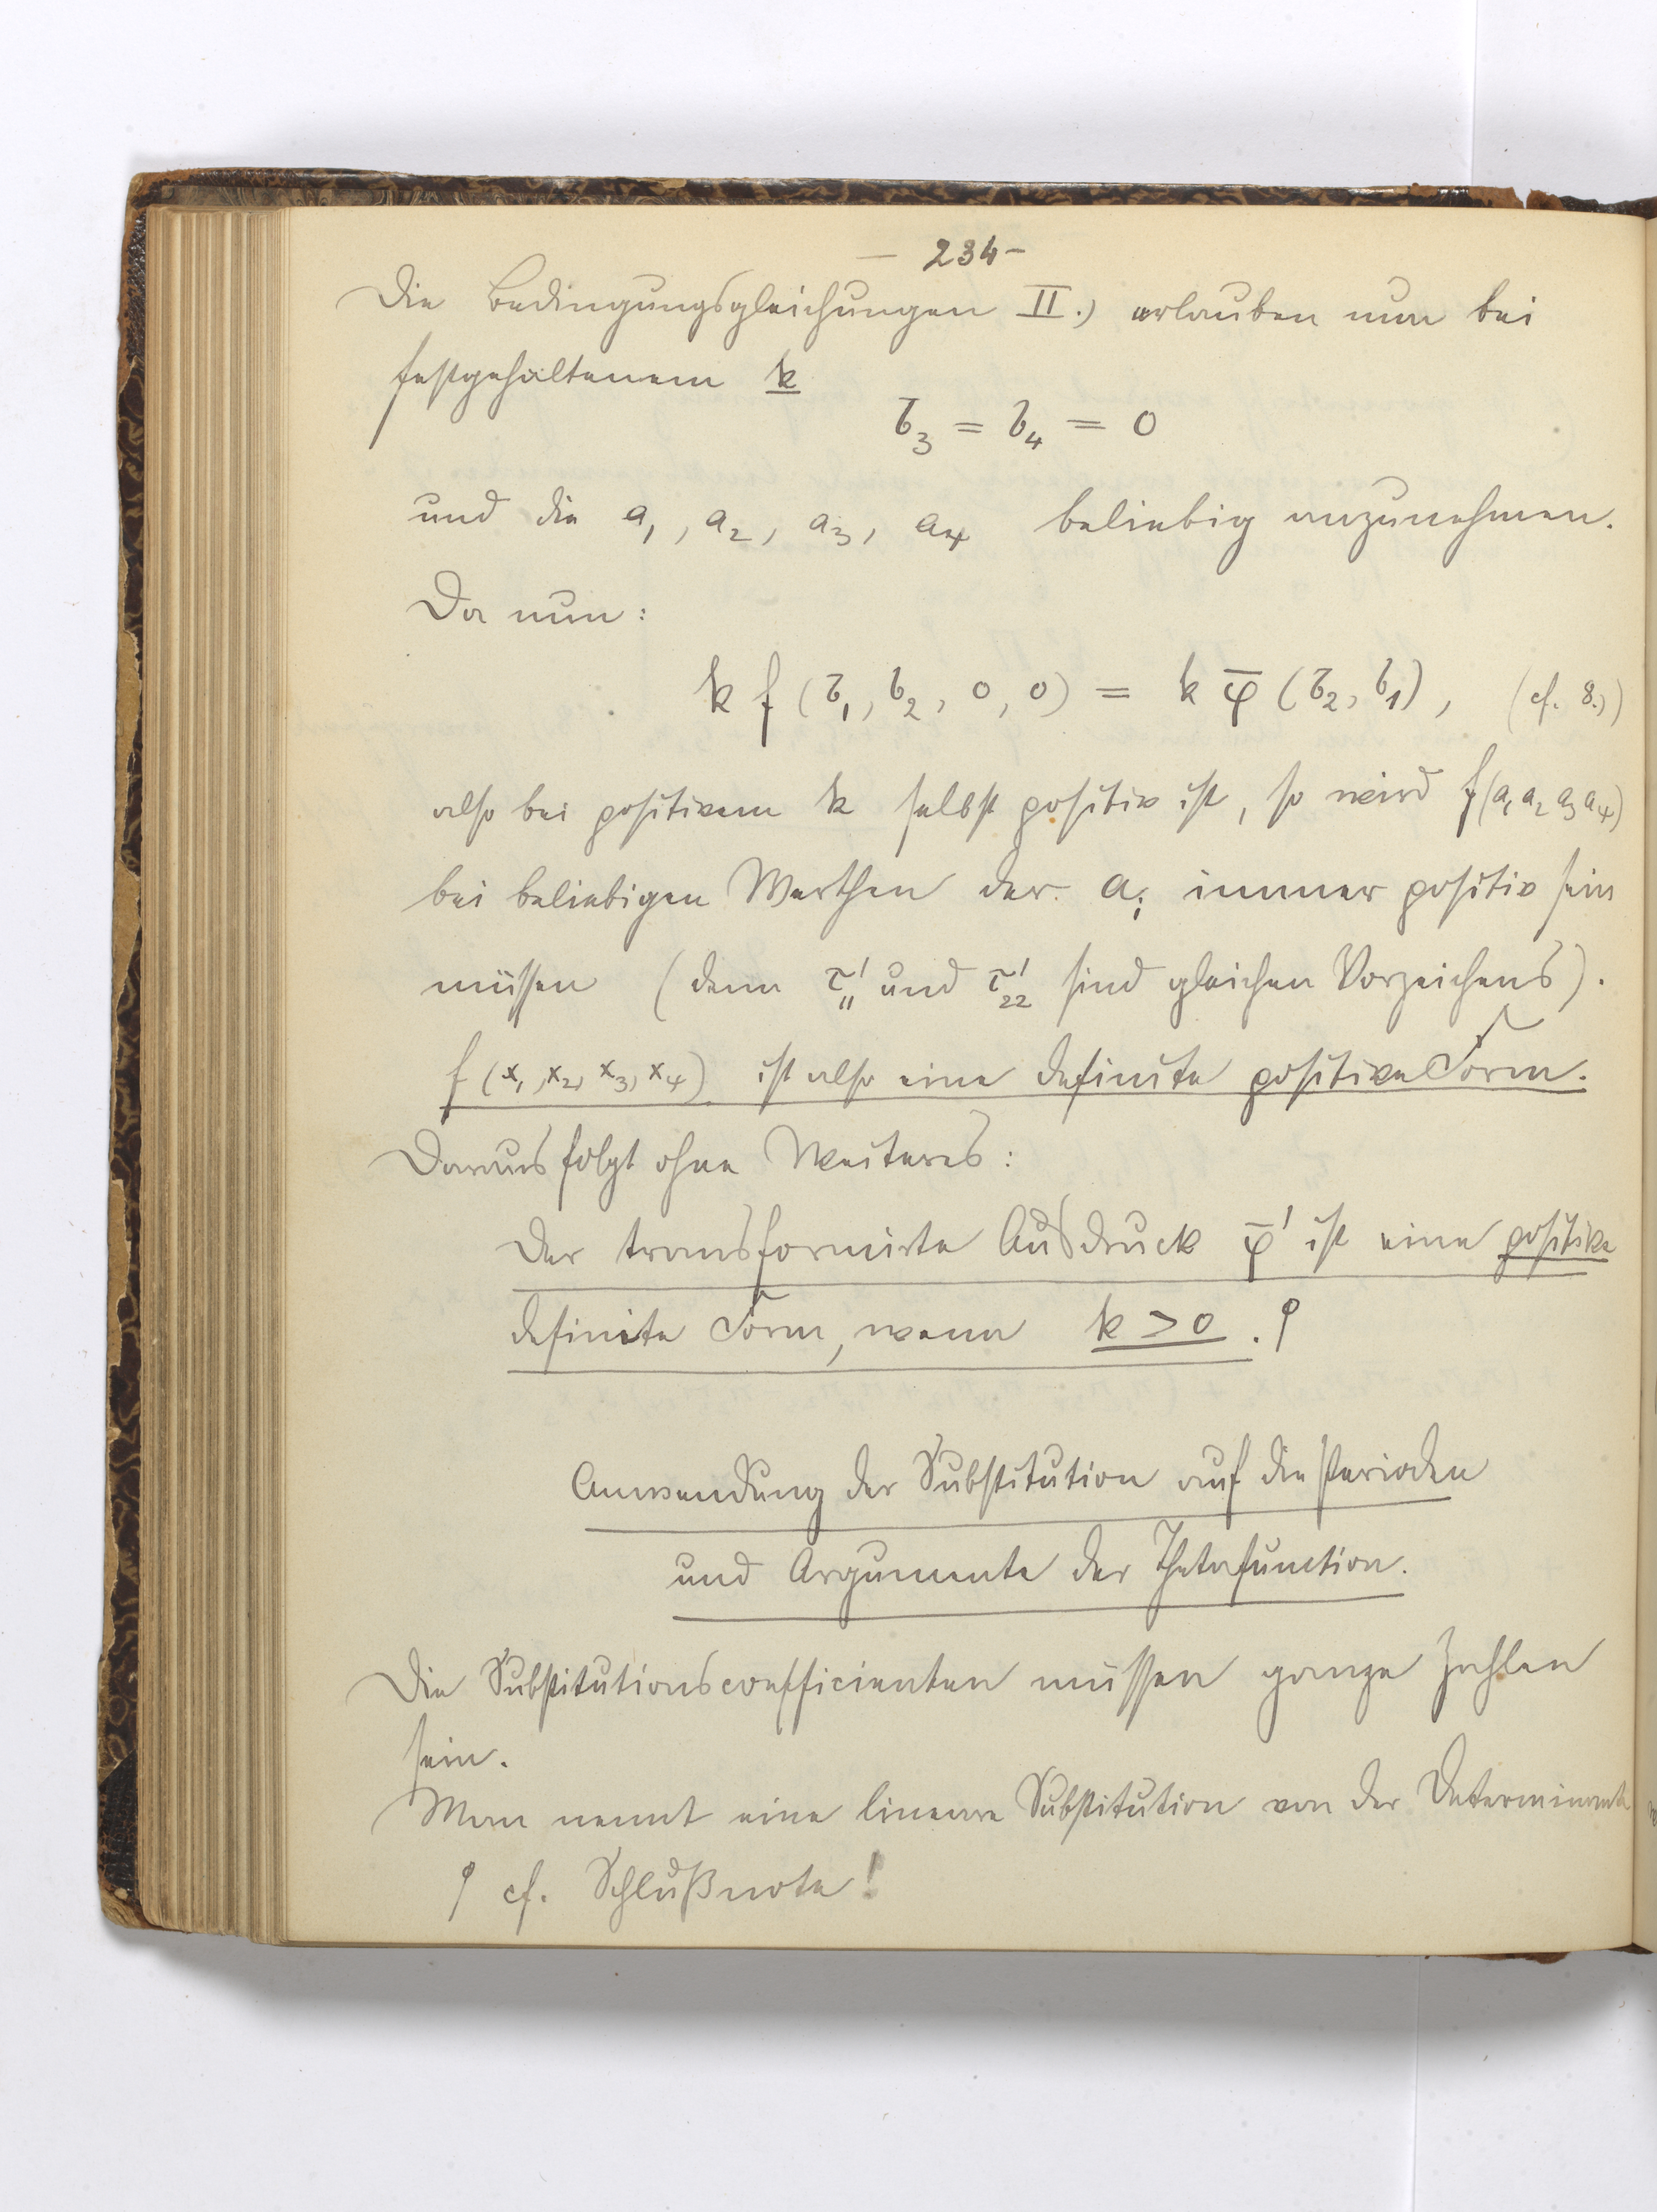 — 234 —
Die Bedingungsgleichungen II.) erlauben nun bei
festgehaltenem k
b₃ = b₄ = 0
und die a₁, a₂, a₃, a₄ beliebig anzunehmen.
Da nun:
k f (b₁, b₂, 0, 0) = k φ̄ (b₂, b₁), (cf. 8.))
also bei positivem k selbst positiv ist, so wird f(a₁ a₂ a₃ a₄)
bei beliebigen Werthen der aᵢ immer positiv sein
müssen (denn τ'₁₁ und τ'₂₂ sind gleichen Vorzeichens).
f (x₁, x₂, x₃, x₄) ist also eine definite positive Form.
Daraus folgt ohne Weiteres:
Der transformirte Ausdruck φ̄' ist eine positive
definite Form, wenn k > 0. ϙ
Anwendung der Substitution auf die Perioden
und Argumente der Thetafunction.
Die Substitutionscoefficienten müssen ganze Zahlen
sein.
Man nennt eine lineare Substitution von der Determinante
ϙ cf. Schlußnote!